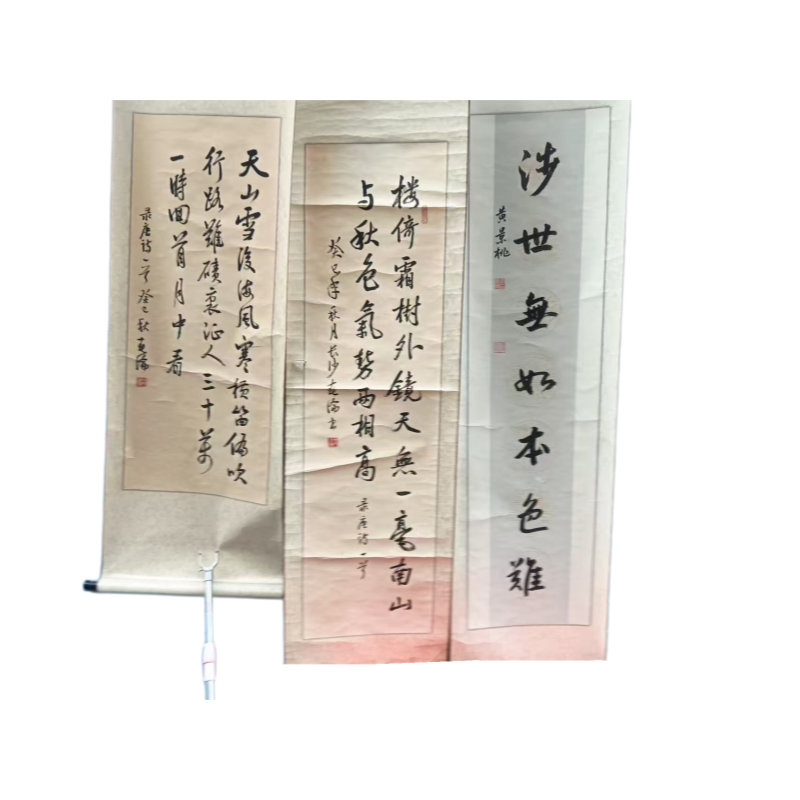 涉世無如本色難
黄景桃
楼倚霜樹外鏡天無一毫南山
与秋色氣勢两相高
录唐诗一首
癸巳年秋月长沙
天山雪後海风寒横笛偏吹
行路難磧裏征人三十萬
一時回首月中看
录唐诗一首癸巳秋